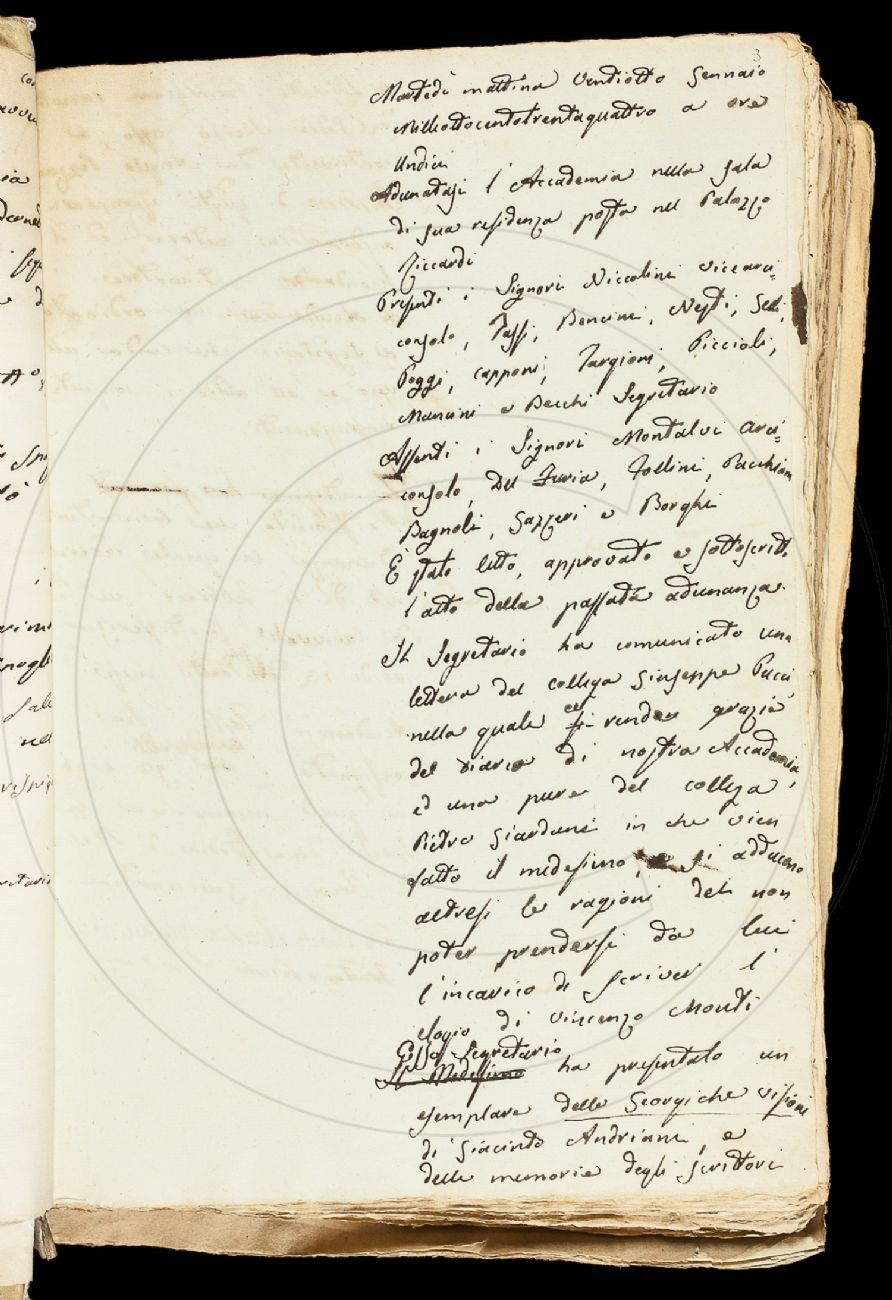 3
Martedì mattina Ventiotto Gennaio
Milleottocentotrentaquattro a ore
Undici
Adunatasi l'Accademia nella sala
di sua residenza posta nel Palazzo
Riccardi
Presenti i Signori Niccolini Vicearci=
consolo, Tassi, Bencini, Nesti,
Poggi, Capponi, Targioni, Piccioli,
Mancini e Becchi Segretario
Assenti i Signori Montalvi Arci=
consolo, Del Furia, Follini, Pucchiani
Bagnoli, Gazzeri e Borghi
È stato letto, approvato e sottoscritto
l'atto della passata adunanza.
Il Segretario ha comunicato una
lettera del collega Giuseppe Pucci,
nella quale ei rende grazie
del diario di nostra Accademia,
ed una pure del collega
Pietro Giordani in che vien
fatto il medesimo, si adducono
altresì le ragioni del non
poter prendersi da lui
l'incarico di scriver l'
elogio di Vincenzo Monti
Esso Segretario
Il Medesimo ha presentato un
esemplare delle Georgiche visioni
di Giacinto Andriani, e
delle memorie degli scrittori